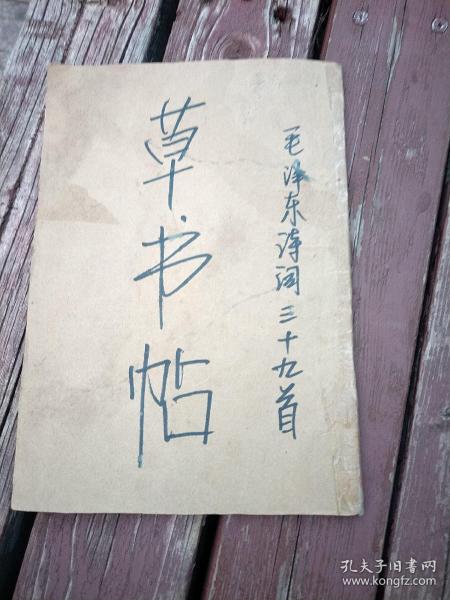 毛泽东诗词三十九首
草书帖
孔夫子旧书网
www.kongfz.com